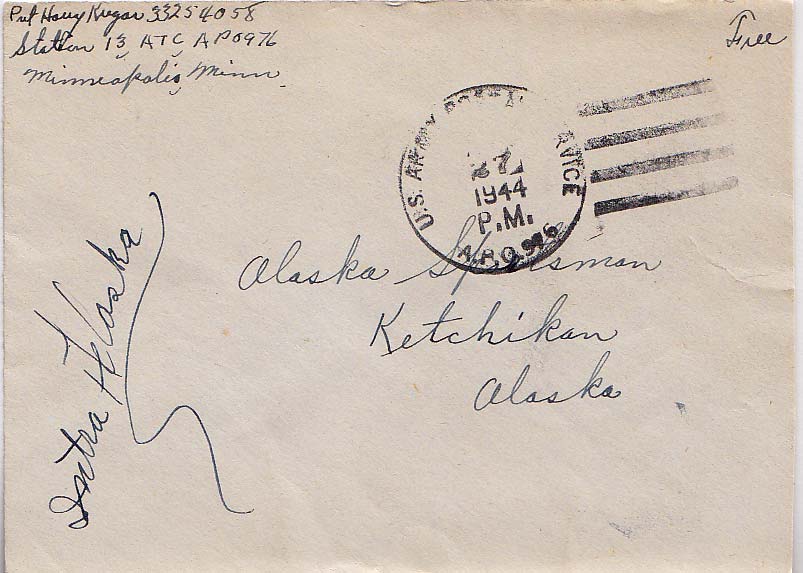 Pvt Harry Kregar 33254058
Station 13, ATC, APO 976
Minneapolis, Minn.
Free
U.S. ARMY POSTAL SERVICE
27
1944
P.M.
A.P.O. 976
Alaska Sportsman
Ketchikan
Alaska
Intra Alaska